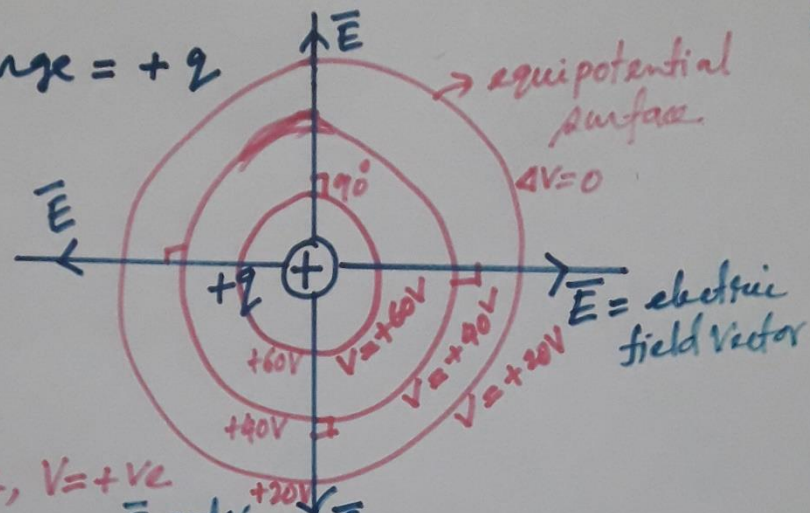 nge = + q
E
equipotential
surface.
90°
ΔV=0
E
+
+q
E = electric
field vector
V=+60V
V=+40V
V=+20V
+60V
+40V
+20V
, V=+ve
E
E